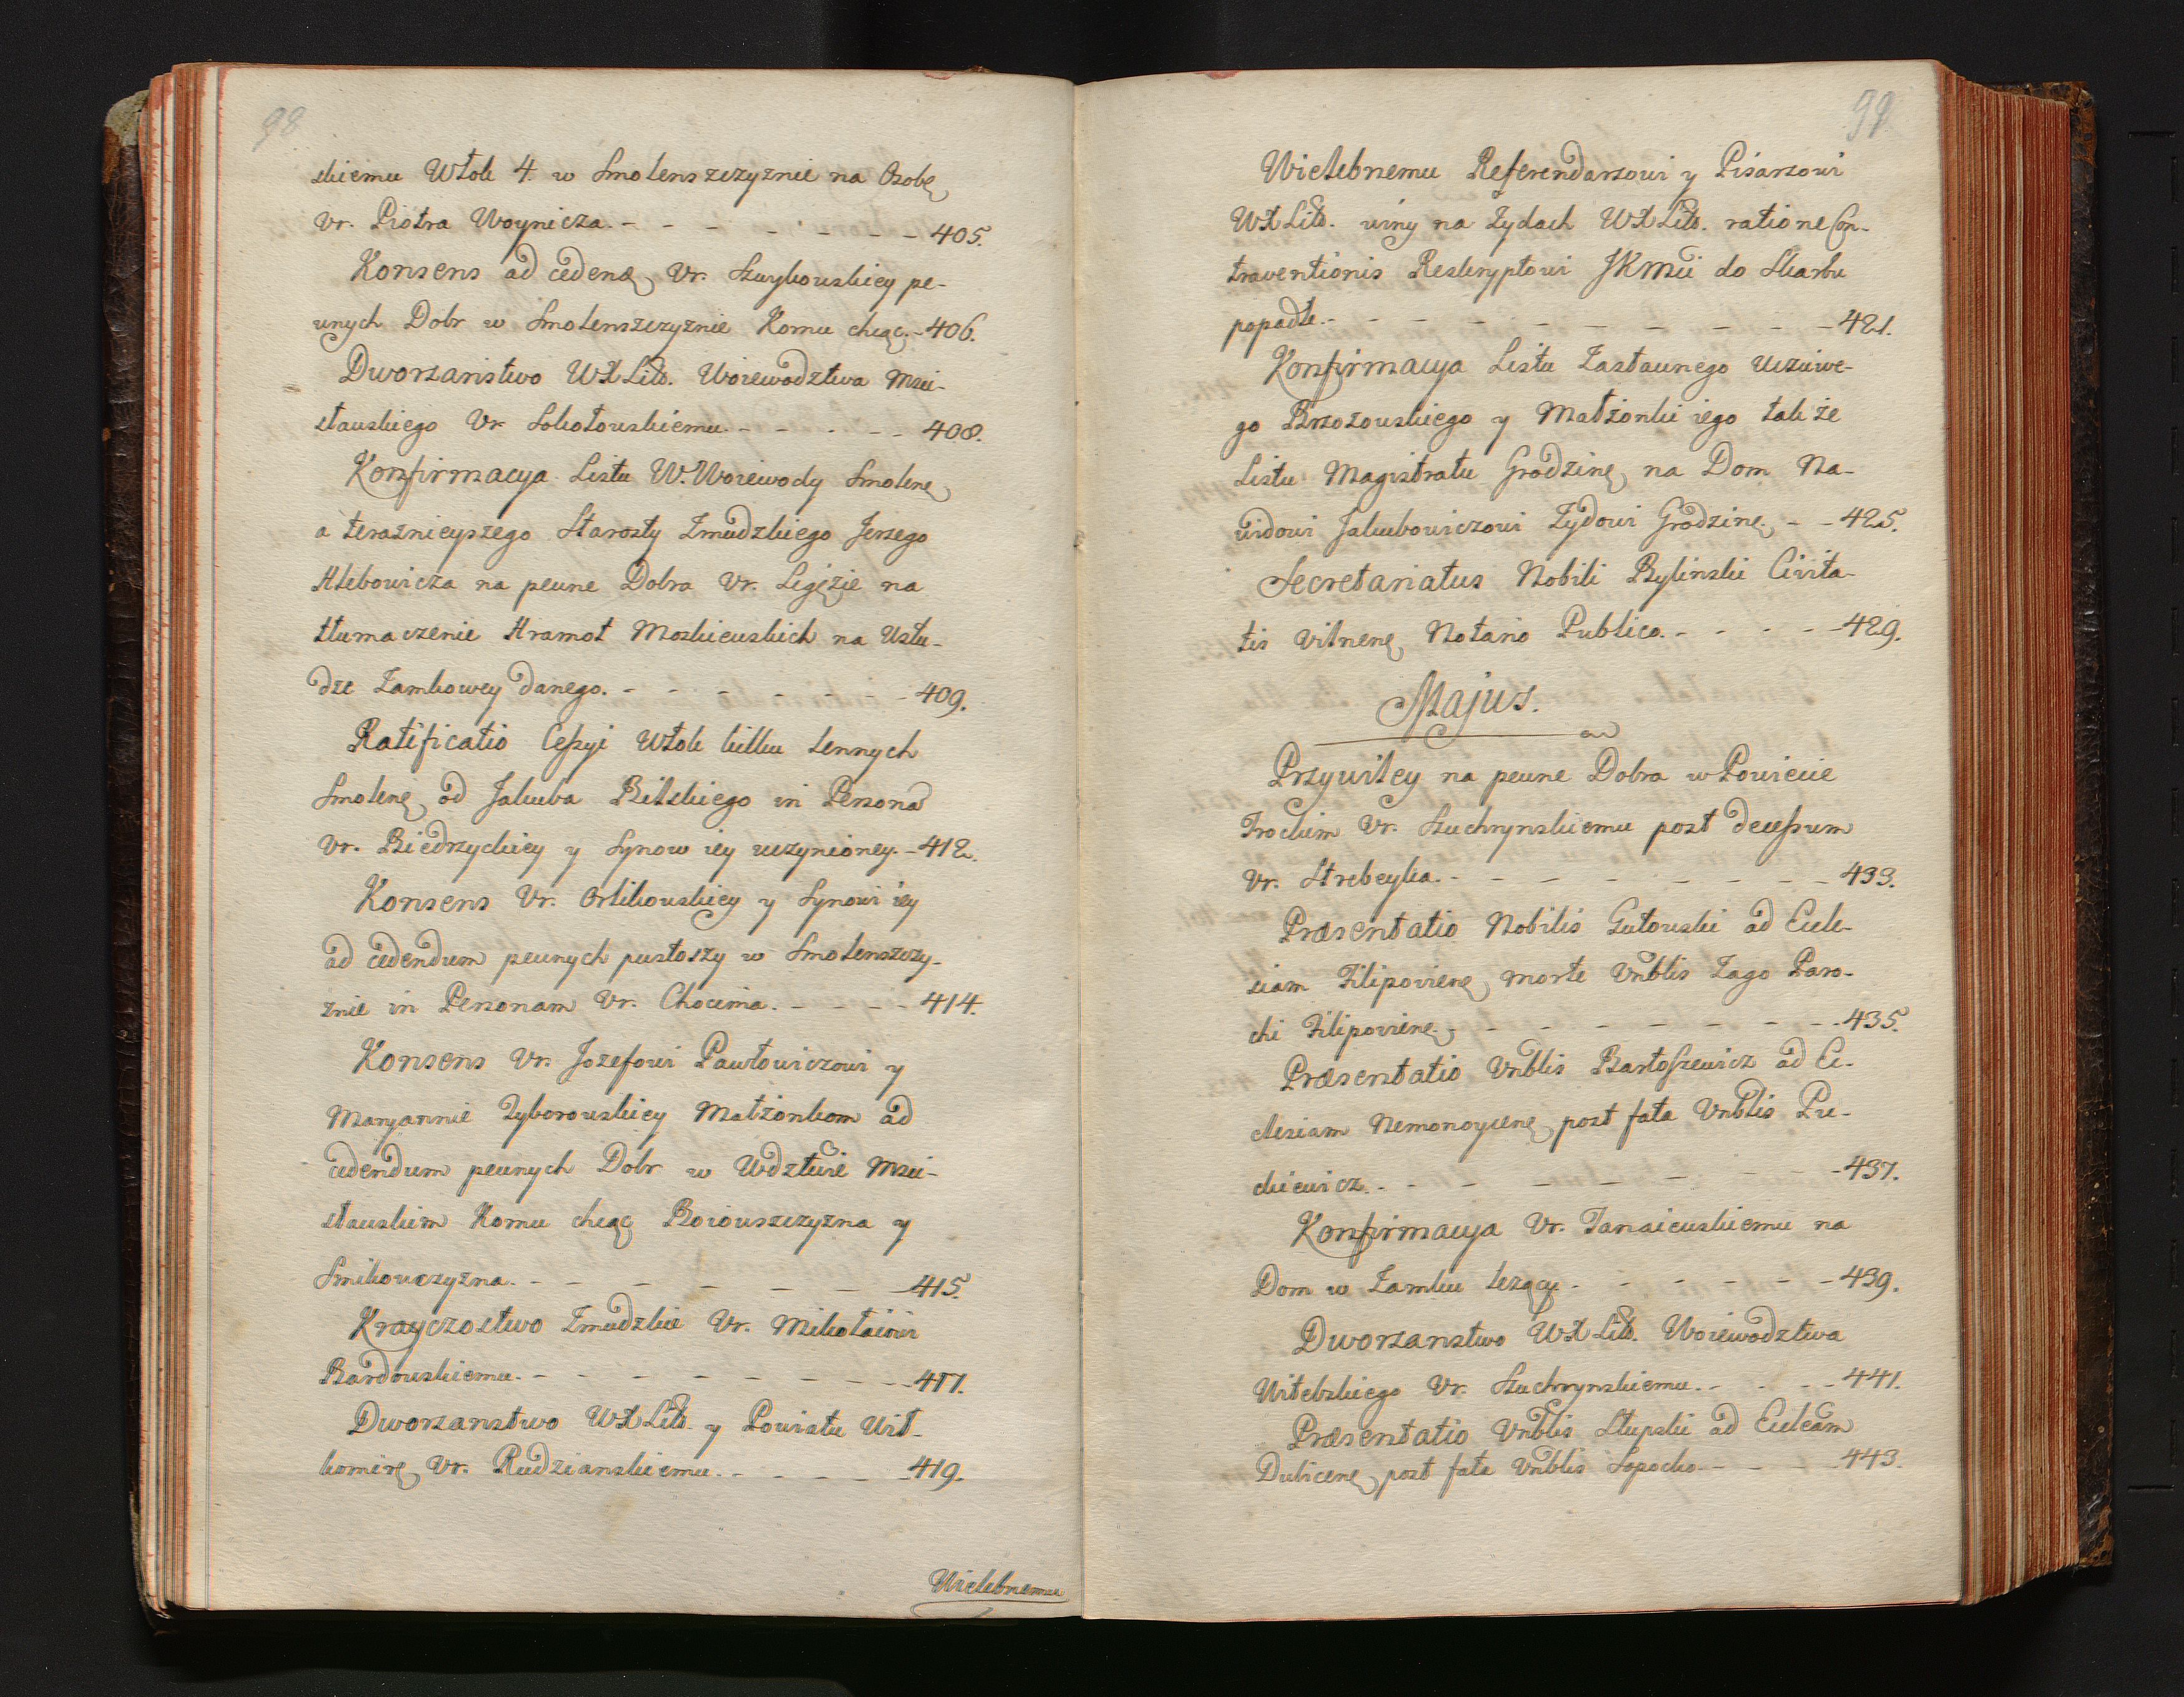 98
skiemu Włok 4. w Smolenszczyznie na Osobę
Ur. Piotra Woynicza. - - - - - - - 405.
Konsens ad ceden: Ur. Szwykowskiey pe-
wnych Dobr w Smolenszczyznie Komu chcąc. - 406.
Dworzanstwo WXLitt. Woiewodztwa Msci-
sławskiego Ur. Sokołowskiemu. - - - - - 408.
Konfirmacya Listu W. Woiewody Smolen:
a teraznieyszego Starosty Zmudzkiego Jerzego
Hlebowicza na pewne Dobra Ur. Legęzie na
tłumaczenie Hramot Moskiewskich na Usłu-
dze Zamkowey danego. - - - - - - - 409.
Ratificatio Cessyi Włok kilku lennych
Smolen: od Jakuba Bilskiego in Persona
Ur. Biedrzyckiey y Synow iey uczynioney. - 412.
Konsens Ur. Orlikowskiey y Synowi iey
ad cedendum pewnych pustoszy w Smolenszczy-
znie in Personam Ur. Chocima. - - - - 414.
Konsens Ur. Jozefowi Pawłowiczowi y
Maryannie Zyborowskiey Małżonkom ad
cedendum pewnych Dobr w Wdztwie Msci-
sławskim Komu chcąc Borowszczyzna y
Smikowczyzna. - - - - - - 415.
Krayczostwo Zmudzkie Ur. Mikołaiowi
Bardowskiemu. - - - - - - - - 417.
Dworzanstwo WXLitt. y Powiatu Wił-
komir: Ur. Rudzianskiemu. - - - - - 419.
Wielebnemu
99
Wielebnemu Referendarzowi y Pisarzowi
WXLitt. winy na Zydach WXLitt. ratione Con-
traventionis Reskryptowi JKMci do Skarbu
popadłe. - - - - - - - - - 421.
Konfirmacya Listu Zastawnego Uczciwe-
go Brzozowskiego y Małżonki iego także
Listu Magistratu Grodzin: na Dom Na-
widowi Jakubowiczowi Zydowi Grodzin: - - 425.
Secretariatus Nobili Bylinski Civita-
tis Vilnen: Notario Publico. - - - - 429.
Majus.
Przywiley na pewne Dobra w Powiecie
Trockim Ur. Suchrynskiemu post decessum
Ur. Strebeyka. - - - - - - - - 433.
Præsentatio Nobilis Gutowski ad Eccle-
siam Filipovien: morte Vnblis Zago Paro-
chi Filipovien: - - - - - - - - 435.
Præsentatio Vnblis Bartoszewicz ad Ec-
clesiam Nemonoycen: post fata Vnblis Pie-
ckiewicz. - - - - - - - - 437.
Konfirmacya Ur. Tanaiewskiemu na
Dom w Zamku leżący. - - - - - - 439.
Dworzanstwo WXLitt. Woiewodztwa
Witebskiego Ur. Suchrynskiemu. - - - - 441.
Præsentatio Vnblis Słupski ad Eccleam
Dubicen: post fata Vnblis Łopocko. - - - 443.